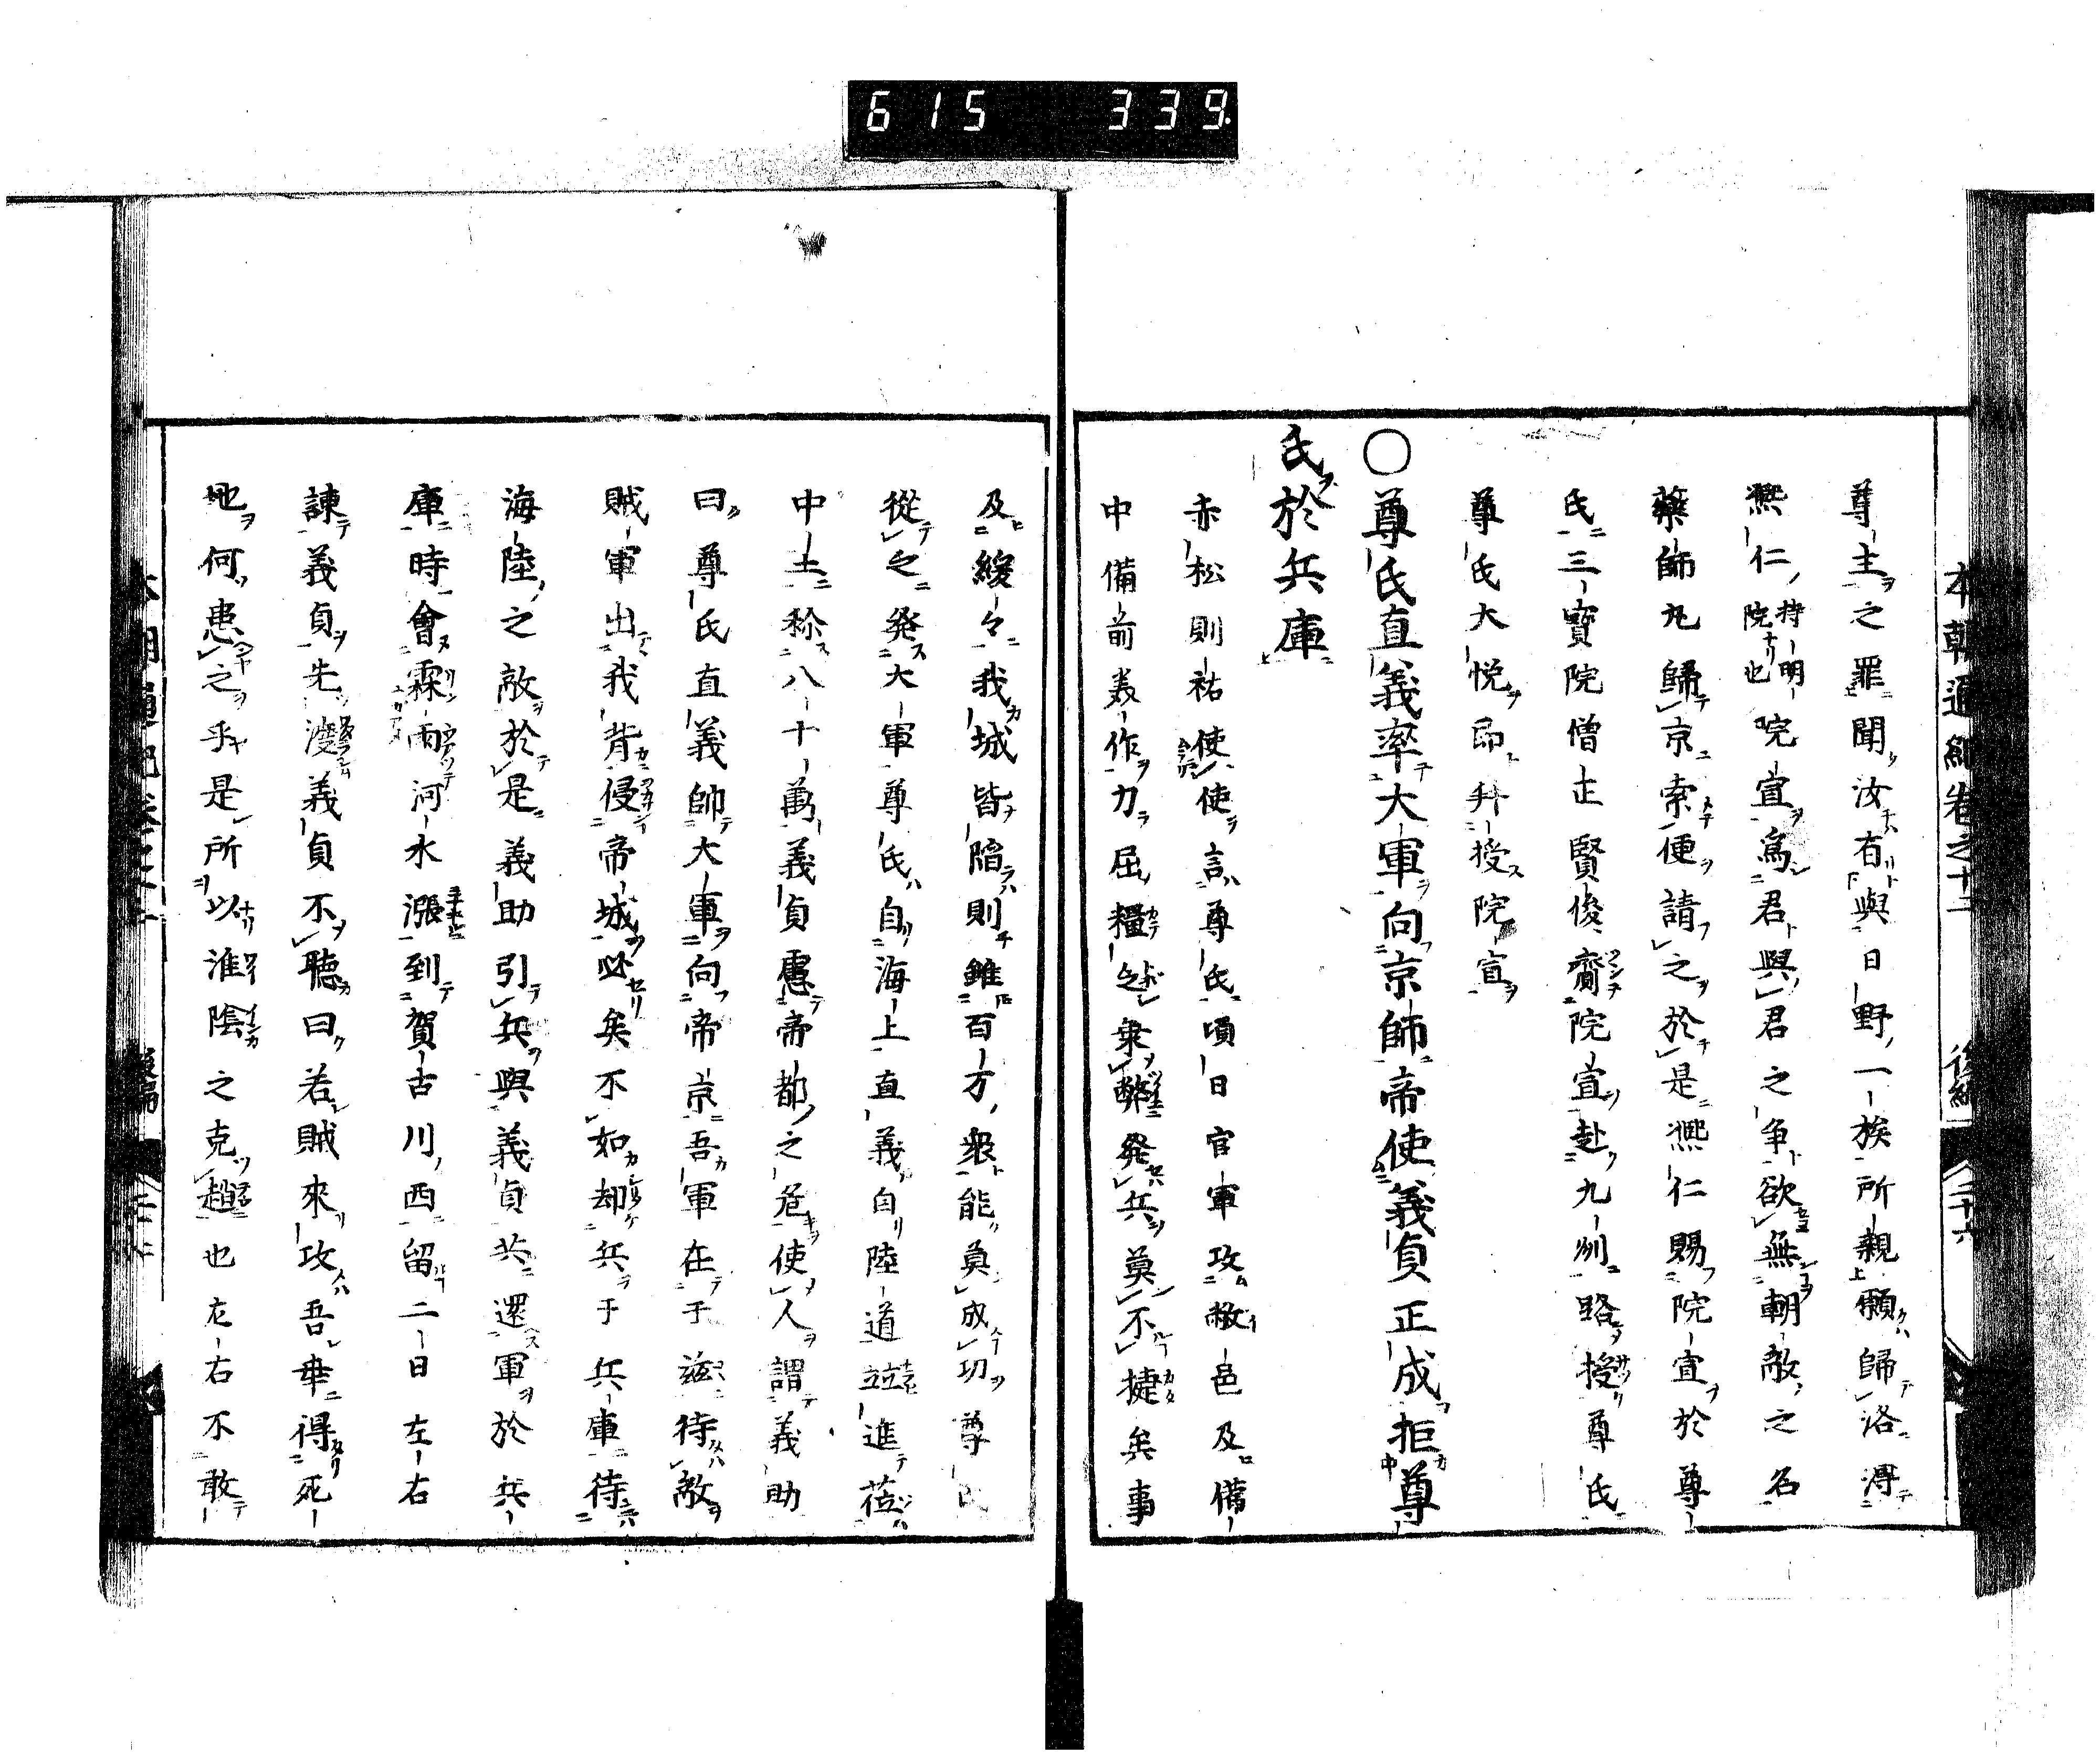 615 339
本朝通紀卷之十二 後編 二十六
尊主之罪聞汝有與日野一族所親願歸洛得
熈仁持明院也院宣為君與君之争欲無朝敵之名
藥師丸歸京索便請之於是熈仁賜院宣於尊
氏三寳院僧正賢俊齎院宣赴九州路授尊氏
尊氏大悦即拜授院宣
○尊氏直義率大軍向京師帝使義貞正成拒尊
氏於兵庫
赤松則祐使使言尊氏頃日官軍攻敝邑及備
中備前美作力屈糧乏衆弊発兵莫不捷矣事
及緩々我城皆陷則雖百万衆能莫成功尊氏
從之発大軍尊氏自海上直義自陸道並進莅
中土称八十萬義貞慮帝都之危使人謂義助
曰尊氏直義帥大軍向帝京吾軍在于兹待敵
賊軍出我背侵帝城必矣不如却兵于兵庫待
海陸之敵於是義助引兵與義貞共還軍於兵
庫時會霖雨河水漲到賀古川西留二日左右
諫義貞先渡義貞不聽曰若賊來攻吾軍得死
地何患之乎是所以淮陰之克趙也左右不敢